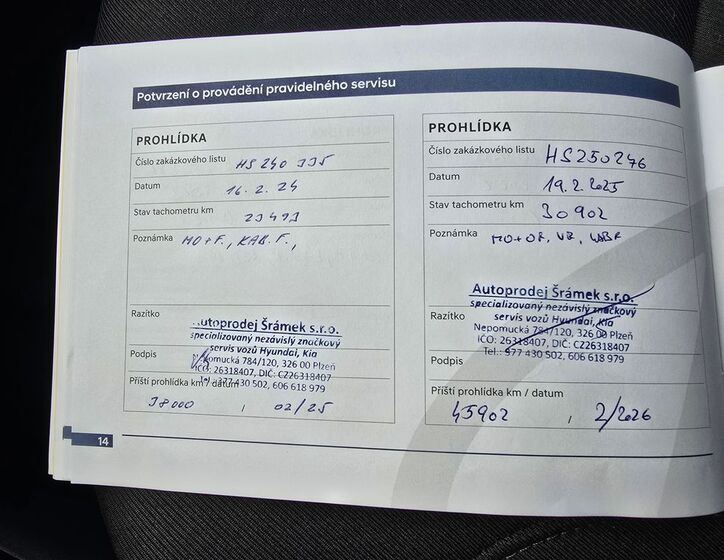 Potvrzení o provádění pravidelného servisu
PROHLÍDKA
Číslo zakázkového listu HS240335
Datum 16. 2. 24
Stav tachometru km
Poznámka MO+F., KAB. F.,
Razítko
Autoprodej Šrámek s.r.o.
specializovaný nezávislý značkový
servis vozů Hyundai, Kia
Nepomucká 784/120, 326 00 Plzeň
IČO: 26318407, DIČ: CZ26318407
Tel.: 377 430 502, 606 618 979
Podpis
Příští prohlídka km / datum
38000 / 02/25
14
PROHLÍDKA
Číslo zakázkového listu HS250246
Datum 19.2.2025
Stav tachometru km 30902
Poznámka MO+OF,
Razítko
Autoprodej Šrámek s.r.o.
specializovaný nezávislý značkový
servis vozů Hyundai, Kia
Nepomucká 784/120, 326 00 Plzeň
IČO: 26318407, DIČ: CZ26318407
Tel.: 377 430 502, 606 618 979
Podpis
Příští prohlídka km / datum
45902 / 2/2026